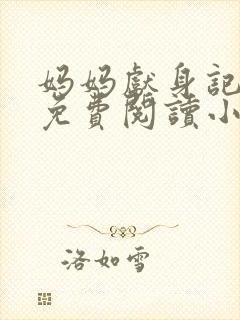 妈妈獻身記
免費閱讀小
洛如雪